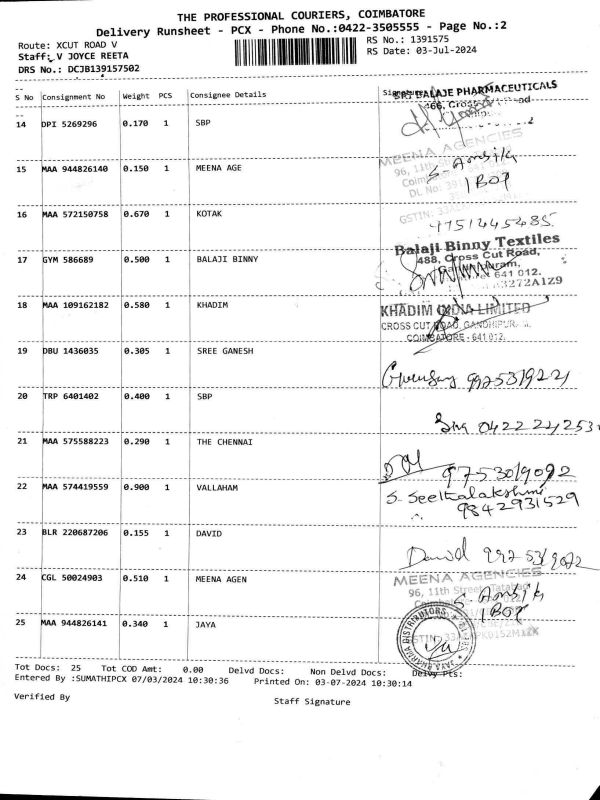 THE PROFESSIONAL COURIERS, COIMBATORE
Delivery Runsheet - PCX - Phone No.:0422-3505555 - Page No.:2
Route: XCUT ROAD V
RS No.: 1391575
Staff: V JOYCE REETA
RS Date: 03-Jul-2024
DRS No.: DCJB139157502
S No Consignment No Weight PCS Consignee Details Signature
SRI BALAJE PHARMACEUTICALS
466, Cross
14 DPI 5269296 0.170 1 SBP
MEENA AGENCIES
96, 11th
15 MAA 944826140 0.150 1 MEENA AGE
DL No:
1 BOX
GSTIN:
16 MAA 572150758 0.670 1 KOTAK
9751445485
Balaji Binny Textiles
488, Cross Cut Road,
17 GYM 586689 0.500 1 BALAJI BINNY
641 012.
3272A1Z9
18 MAA 109162182 0.580 1 KHADIM
KHADIM INDIA LIMITED
CROSS CUT ROAD, GANDHIPURAM,
COIMBATORE - 641 012.
19 DBU 1436035 0.305 1 SREE GANESH
9925319221
20 TRP 6401402 0.400 1 SBP
0422 224253
21 MAA 575588223 0.290 1 THE CHENNAI
9753019092
22 MAA 574419559 0.900 1 VALLAHAM
S. Seethalakshmi
9842931529
23 BLR 220687206 0.155 1 DAVID
David 9925319022
24 CGL 50024903 0.510 1 MEENA AGEN
MEENA AGENCIES
96, 11th Street, Tatabad
1 BOX
25 MAA 944826141 0.340 1 JAYA
JAYA PHARMA DISTRIBUTORS
Tot Docs: 25 Tot COD Amt: 0.00 Delvd Docs: Non Delvd Docs: Delvy Pts:
Entered By :SUMATHIPCX 07/03/2024 10:30:36 Printed On: 03-07-2024 10:30:14
Verified By
Staff Signature